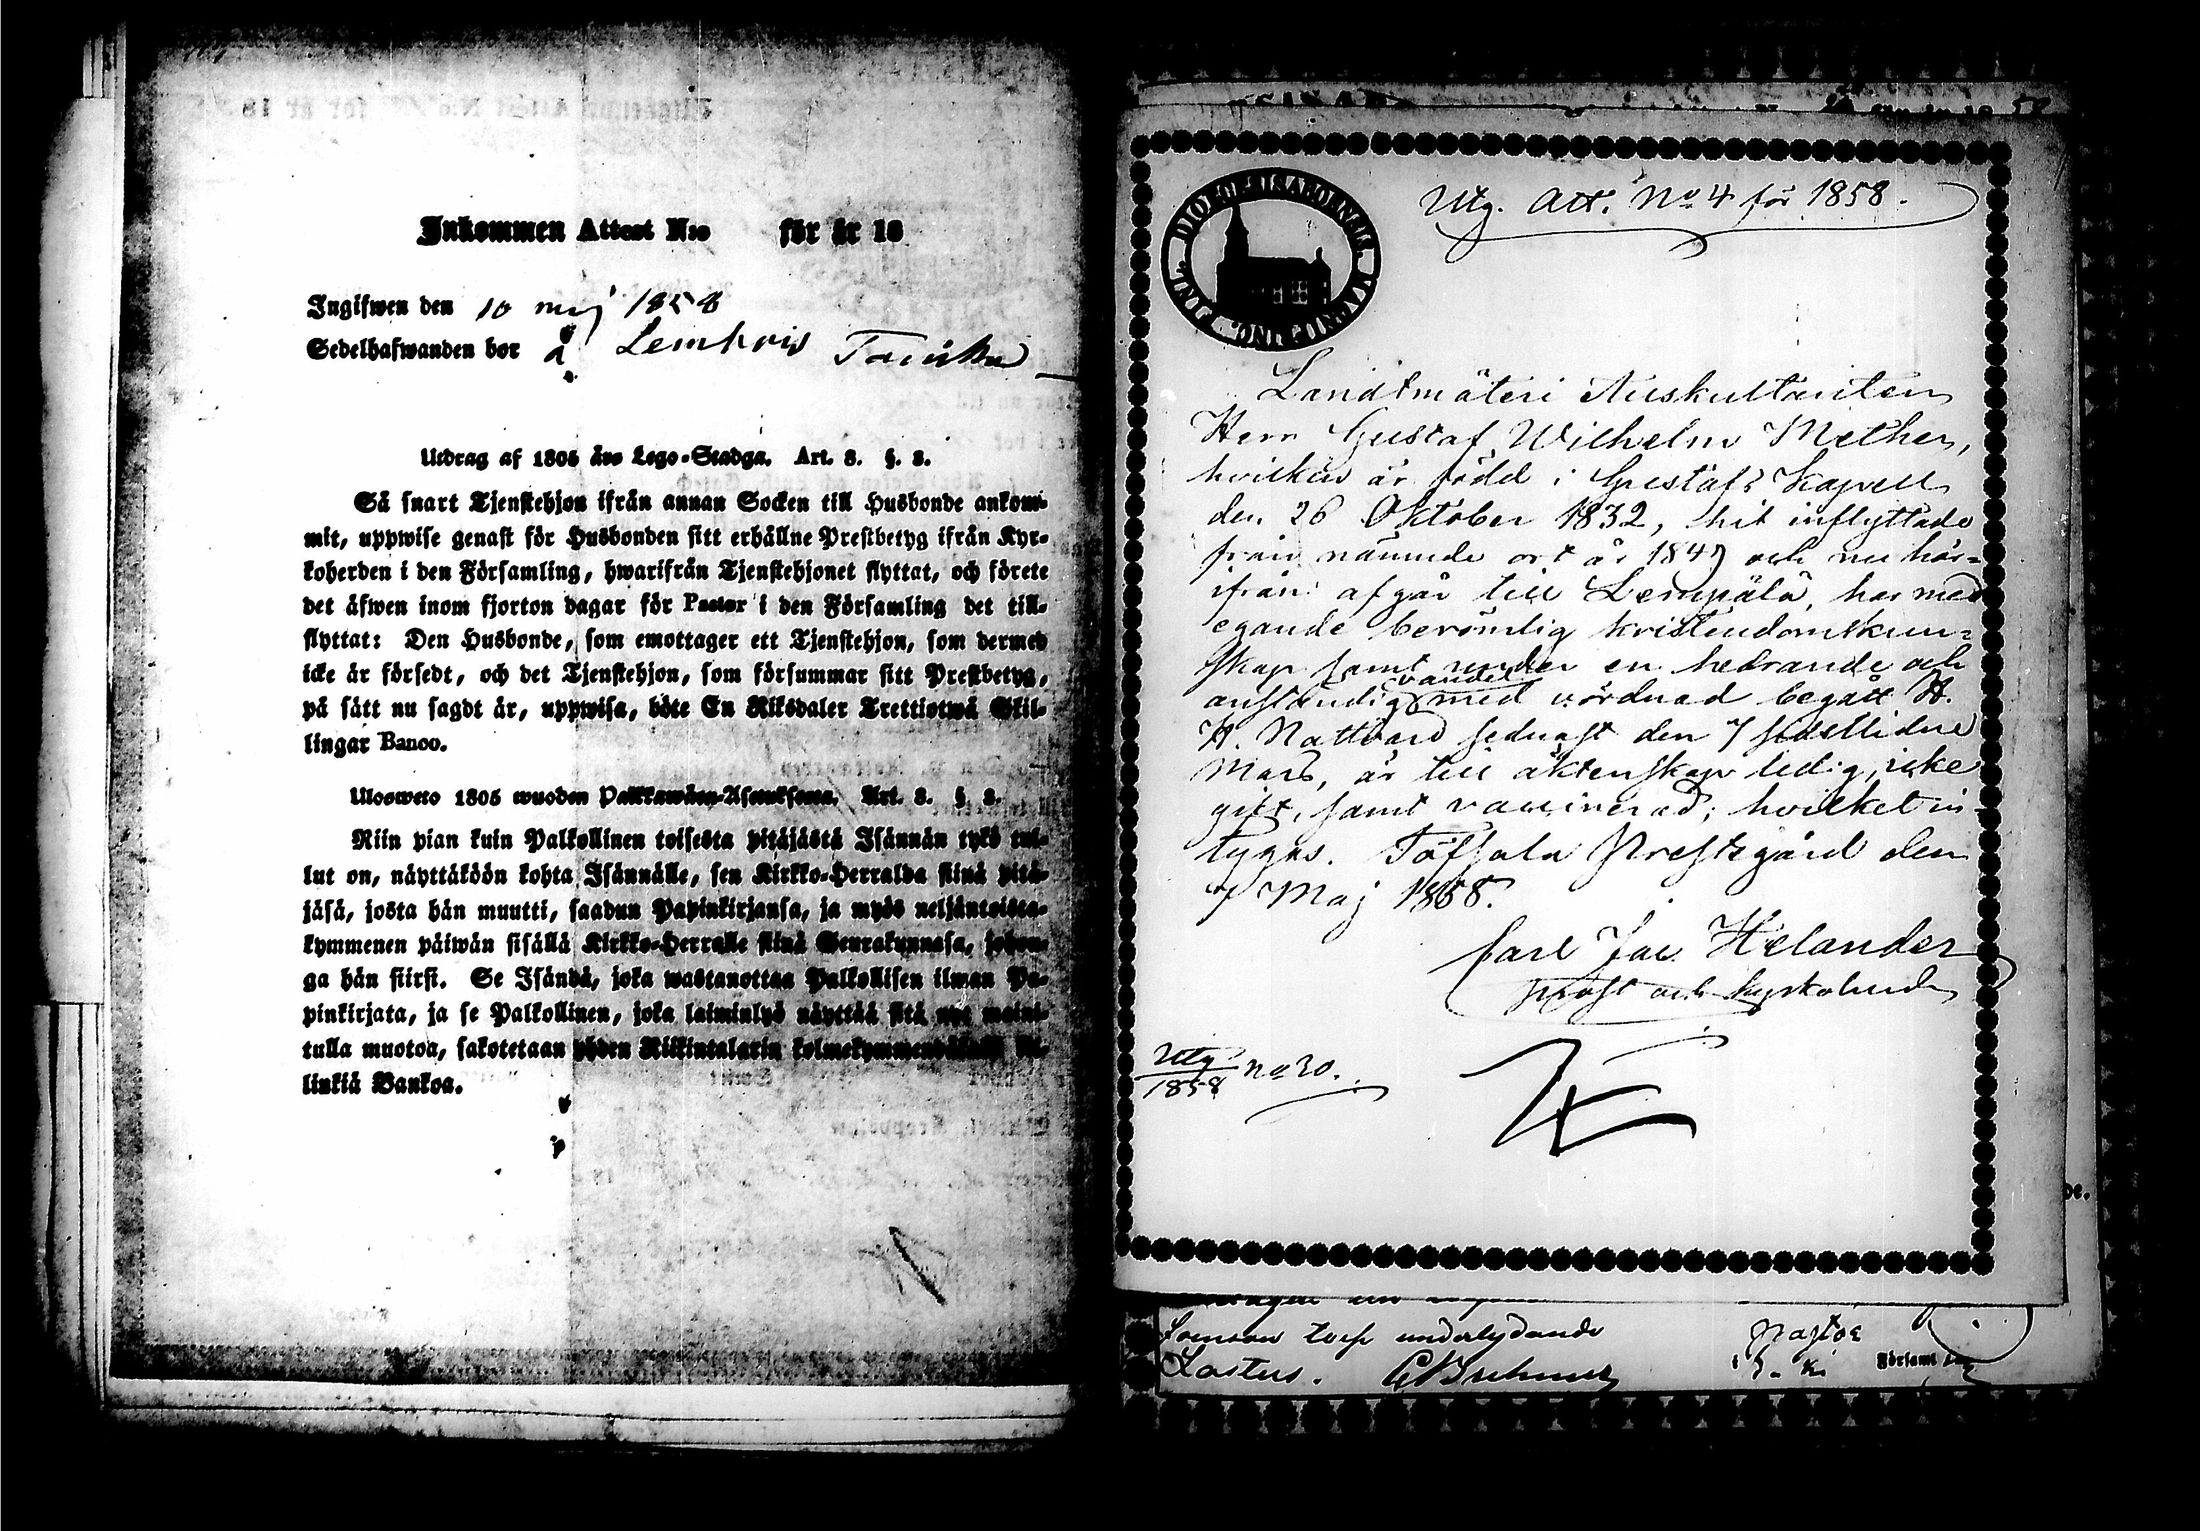 Inkommen Attest N:o för år 18
Ingifwen den 10 maj 1858
Sedelhafwanden bor å Lembois
Utdrag af 1805 års Lego-Stadga. Art. 8. §. 8.
Så snart Tjenstehjon ifrån annan Socken till Husbonde ankom-
mit, uppwise genast för Husbonden sitt erhållne Prestbetyg ifrån Kyr-
koherden i den Församling, hwarifrån Tjenstehjonet flyttat, och förete
det äfwen inom fjorton dagar för Pastor i den Församling det till-
flyttat: Den Husbonde, som emottager ett Tjenstehjon, som dermed
icke är försedt, och det Tjenstehjon, som försummar sitt Prestbetyg,
på sätt nu sagdt är, uppwisa, böte En Riksdaler Trettiotwå Skil-
lingar Banco.
Ulosweto 1805 wuoden Palkkawäen-Asetuksesta. Art. 8. § 8.
Niin pian kuin Palkollinen toisesta pitäjästä Isännän tykö tul-
lut on, näyttäköön kohta Isännälle, sen Kirkko-Herralda siinä pitä-
jäsä, josta hän muutti, saadun Papinkirjansa, ja myös neljäntoista-
kymmenen päiwän sisällä Kirkko-Herralle siinä Seurakunnasa, johon-
ga hän siirsi. Se Isändä, joka wastanottaa Palkollisen ilman Pa-
pinkirjata, ja se Palkollinen, joka laiminlyö näyttää sitä nyt maini-
tulla muotoa, sakotetaan yhden Riikintalarin kolmekymmendäkaksi kil-
linkiä Bankoa.
Utg. Att. No. 4 för 1858.
Landtmäteri Auskultanten
Herr Gustaf Wilhelm Mether,
hvilken är född i Gustafs Kapell
den 26 Oktober 1832, hit inflyttade
från nämnde ort år 1847 och nu här-
ifrån afgår till Lempälä, har med
egande berömlig kristendomskun-
skap samt under en hedrande och
anständig vandel med vördnad begått H.
H. Nattvard sednast den 7 sistlidne
Mars, är till äktenskap ledig, icke
gift, samt vaccinerad; hvilket in-
tygas. Töfsala Prestgård den
7 Maj 1858.
Carl Jac. Helander
Prost och kyrkoherde
Utg 1858 No 20.
torp underlydande
Pastor
Lastus.
Församl